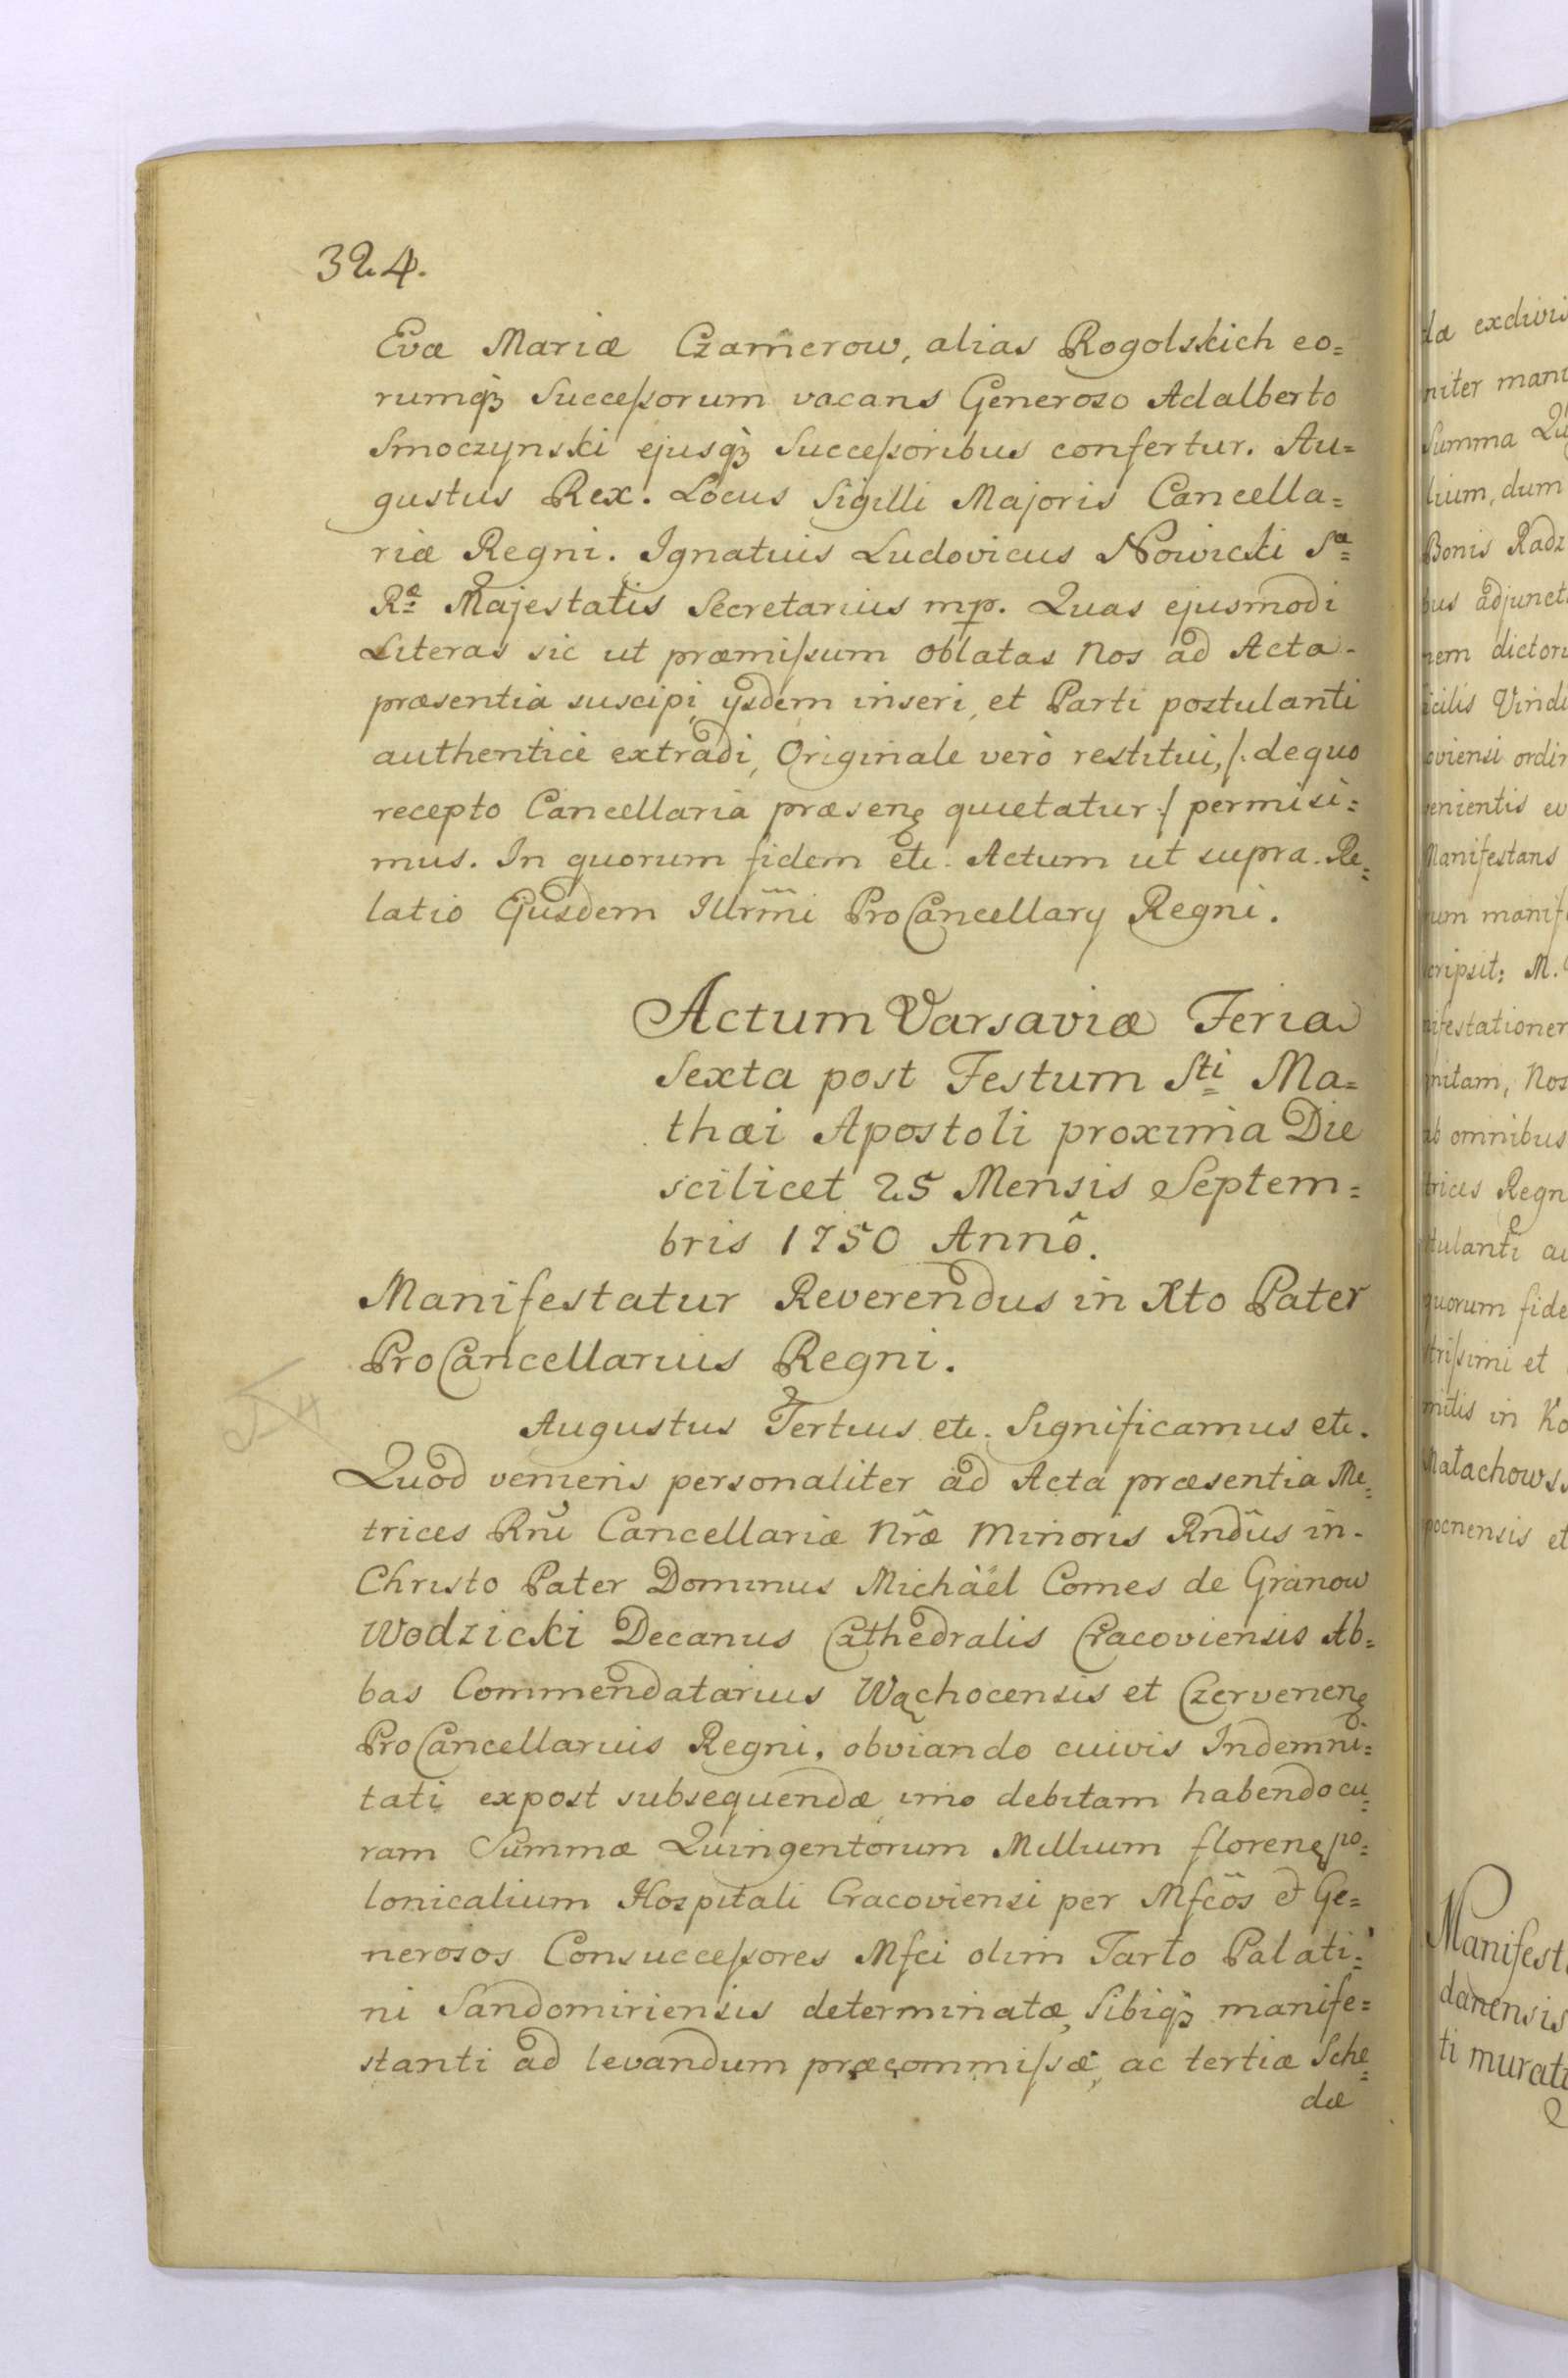 324.
Evæ Mariæ Czam̃erow, alias Rogolskich eo=
rumqꝫ Succeſsorum vacans Generoso Adalberto
Smoczynski ejusqꝫ Succeſsoribus confertur. Au=
gustus Rex. Locus Sigilli Majoris Cancella=
riæ Regni. Ignatius Ludovicus Nowicki Sæ
Ræ Majestatis Secretarius mp. Quas ejusmodi
Literas sic ut præmiſsum oblatas Nos ad Acta
præsentia suscipi, ijsdem inseri, et Parti postulanti
authenticè extradi, Originale verò restitui, /: de quo
recepto Cancellaria præsens quietatur :/ permisi=
mus. In quorum fidem etc. Actum ut supra. Re=
latio Ejusdem Illrm̃i ProCancellary Regni.
Actum Varsaviæ Feria
Sexta post Festum Sti Ma=
thæi Apostoli proxima Die
scilicet 25 Mensis Septem=
bris 1750 Annô.
Manifestatur Reverendus in Xto Pater
ProCancellarius Regni.
Augustus Tertius etc. Significamus etc.
Quod veniens personaliter ad Acta præsentia Me=
trices Rñi Cancellariæ Nr̃æ Minoris Rnd̃us in
Christo Pater Dominus Michäel Comes de Granow
Wodzicki Decanus Cathedralis Cracoviensis Ab=
bas Commendatarius Wąchocensis et Czervenens
ProCancellarius Regni, obviando cuivis Indemni=
tati expost subsequendæ imo debitam habendo cu=
ram Summæ Quingentorum Millium floren po=
lonicalium Hospitali Cracoviensi per Mfc̃os et Ge=
nerosos Consucceſsores Mfci olim Tarło Palati=
ni Sandomiriensis determinatæ, Sibiqꝫ manife=
stanti ad levandum præcommiſsæ, ac tertiæ Sche=
dæ
dæ
niter
Summa
lium, dum
Bonis Radz
dictor
ordin
Manifestans
M.
Nos
ab omnibus
trices Regn
quorum fide
et
in Ko
Małachows
et
Manifest
danensis
ti murat